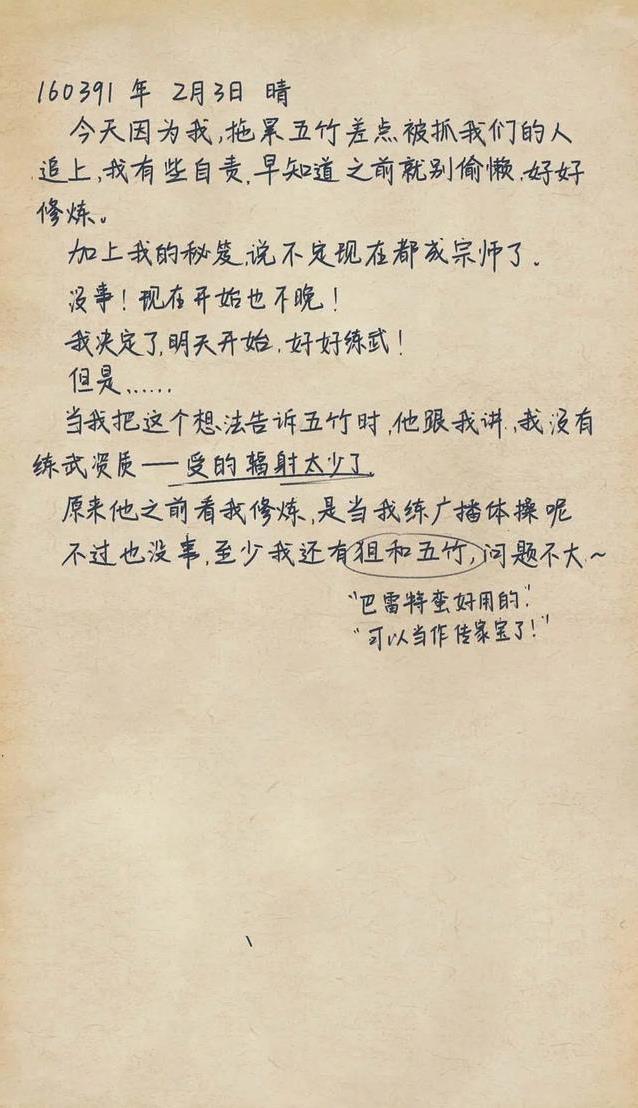 160391年 2月3日 晴
今天因为我,拖累五竹差点被抓我们的人
追上,我有些自责,早知道之前就别偷懒,好好
修炼。
加上我的秘笈,说不定现在都成宗师了。
没事!现在开始也不晚!
我决定了,明天开始,好好练武!
但是……
当我把这个想法告诉五竹时,他跟我讲,我没有
练武资质——受的辐射太少了。
原来他之前看我修炼,是当我练广播体操呢
不过也没事,至少我还有狙和五竹,问题不大~
"巴雷特蛮好用的."
"可以当作传家宝了!"